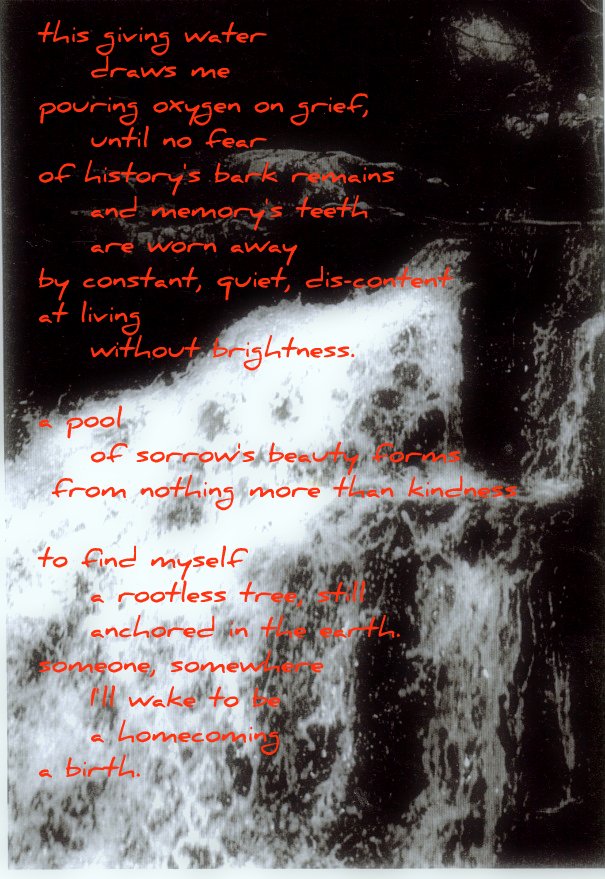 this giving water
draws me
pouring oxygen on grief,
until no fear
of history's bark remains
and memory's teeth
are worn away
by constant, quiet, dis-content
at living
without brightness.
a pool
of sorrow's beauty forms
from nothing more than kindness
to find myself
a rootless tree, still
anchored in the earth.
someone, somewhere
I'll wake to be
a homecoming
a birth.